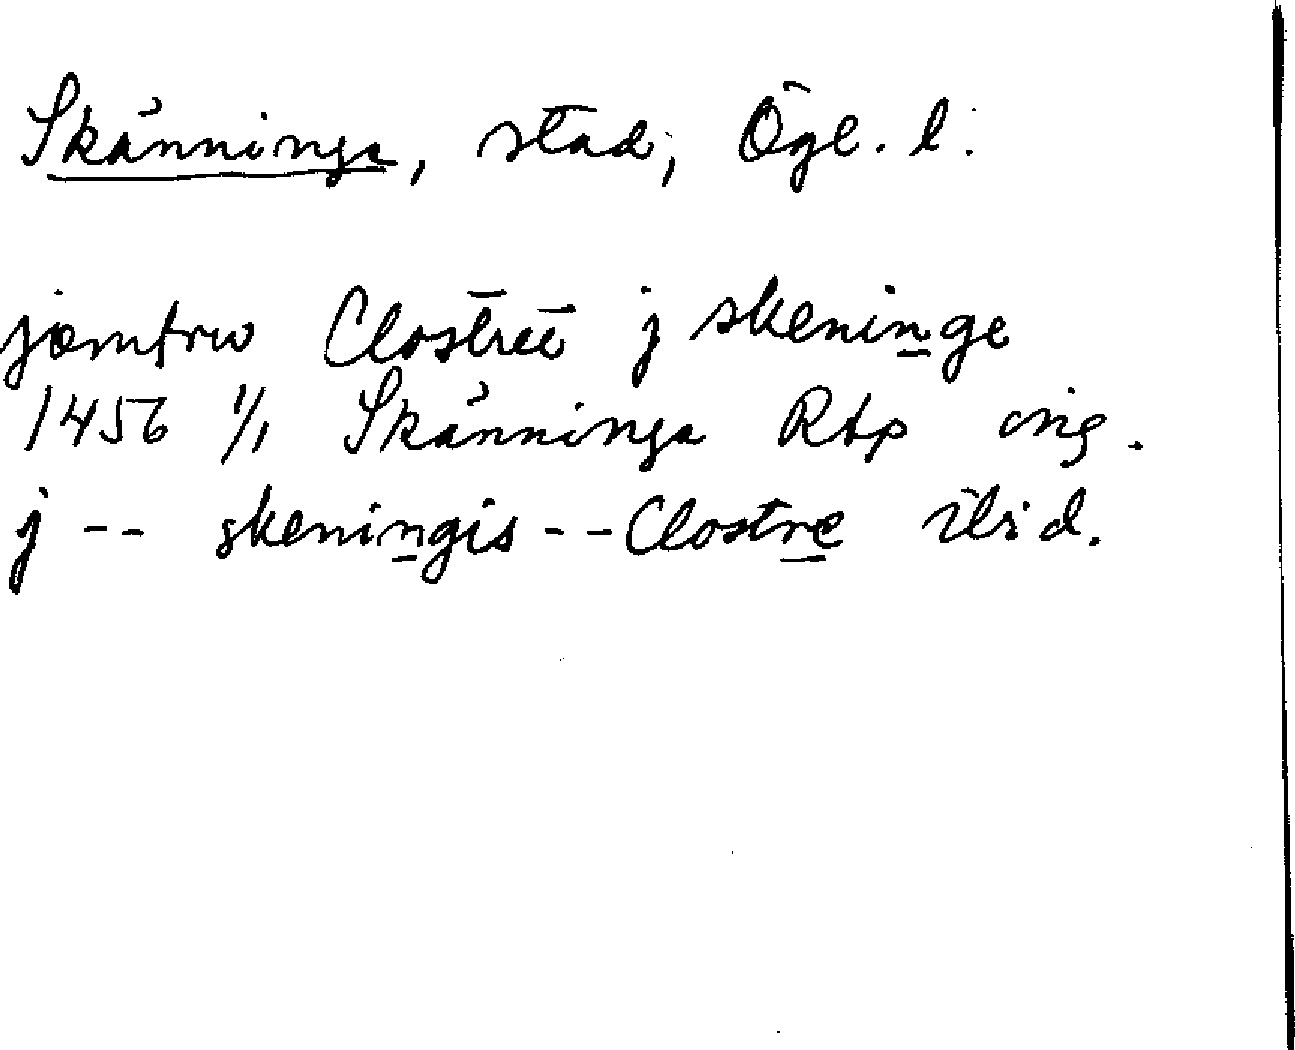 Skänninge, stad, Ögl. l.
jomfrw Clostret j skeninge
1456 1/1 Skänninge RAp orig.
j -- skeningis -- Clostre ibid.